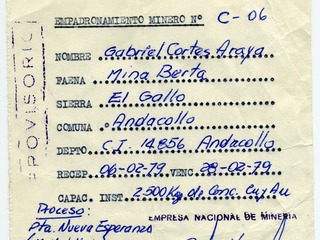 PROVISORIO
EMPADRONAMIENTO MINERO Nº C-06
NOMBRE Gabriel Cortes Araya
FAENA Mina Berta
SIERRA El Gallo
COMUNA Andacollo
DEPTO C.I. 14.856 Andacollo
RECEP. 06-02-79 VENC. 28-02-79
CAPAC. INST. 2.500 Kg de Conc. Cu y Au
Proceso:
EMPRESA NACIONAL DE MINERIA
Pta. Nueva Esperanza